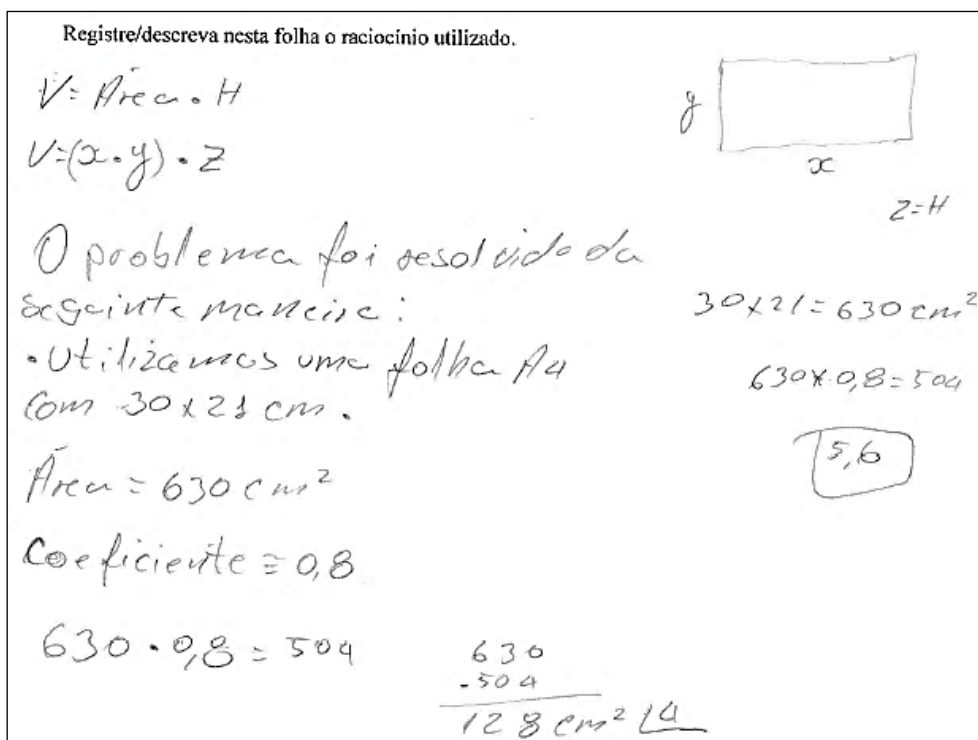 Registre/descreva nesta folha o raciocínio utilizado.
V= Área . H
V=(x.y) . Z
y
x
Z=H
O problema foi resolvido da
seguinte maneira:
. Utilizamos uma folha A4
com 30x21 cm.
Área = 630 cm²
Coeficiente ≅ 0,8
630 . 0,8 = 504
30x21=630 cm²
630x0,8=504
5,6
630
-504
128 cm² 4